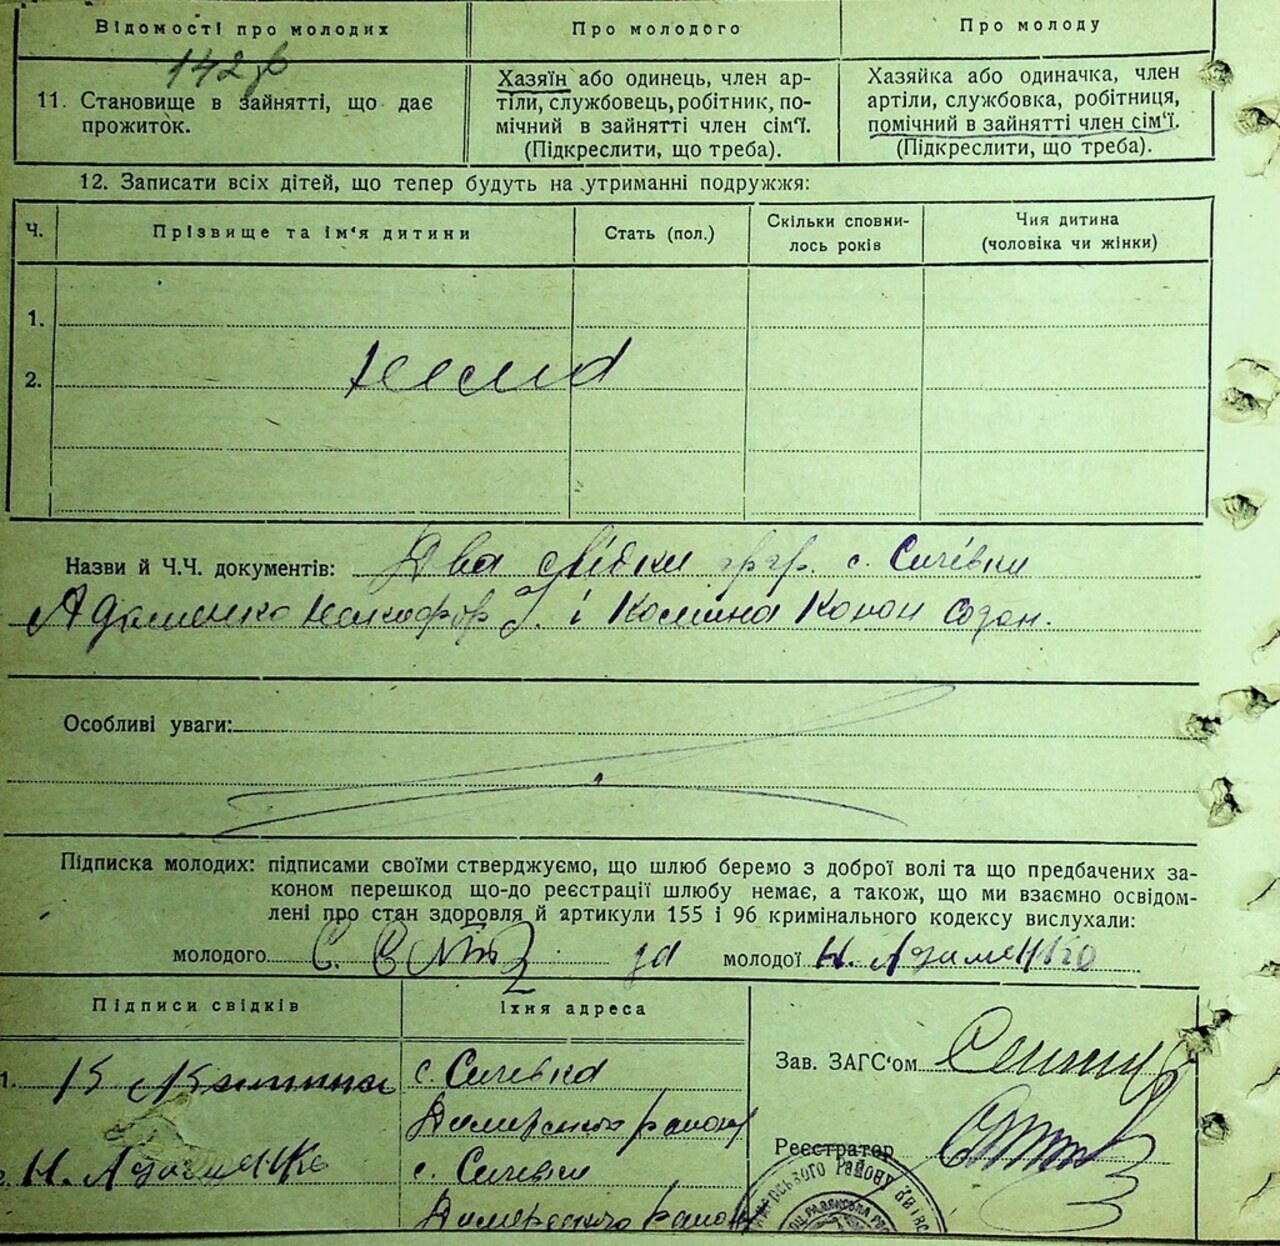 Відомості про молодих Про молодого Про молоду
142
11. Становище в зайнятті, що дає прожиток.
Хазяїн або одинець, член ар-
тіли, службовець, робітник, по-
мічний в зайнятті член сім'ї.
(Підкреслити, що треба).
Хазяйка або одиначка, член
артіли, службовка, робітниця,
помічний в зайнятті член сім'ї.
(Підкреслити, що треба).
12. Записати всіх дітей, що тепер будуть на утриманні подружжя:
Ч. Прізвище та ім'я дитини Стать (пол.) Скільки сповни-
лось років Чия дитина
(чоловіка чи жінки)
1.
2. Нема
Назви й Ч.Ч. документів: Два свідки гр.гр. с. Сичівки
Адаменко Никифор І. і Калина Конон Созон.
Особливі уваги:
Підписка молодих: підписами своїми стверджуємо, що шлюб беремо з доброї волі та що предбачених за-
коном перешкод що-до реєстрації шлюбу немає, а також, що ми взаємно освідом-
лені про стан здоровля й артикули 155 і 96 кримінального кодексу вислухали:
молодого С. за молодої Н. Адаменко
Підписи свідків Їхня адреса
1. К Калина с. Сичівка
Димерського району
Н. Адаменко с. Сичівки
Димерського району
Зав. ЗАГС'ом
Реєстратор
району Київс